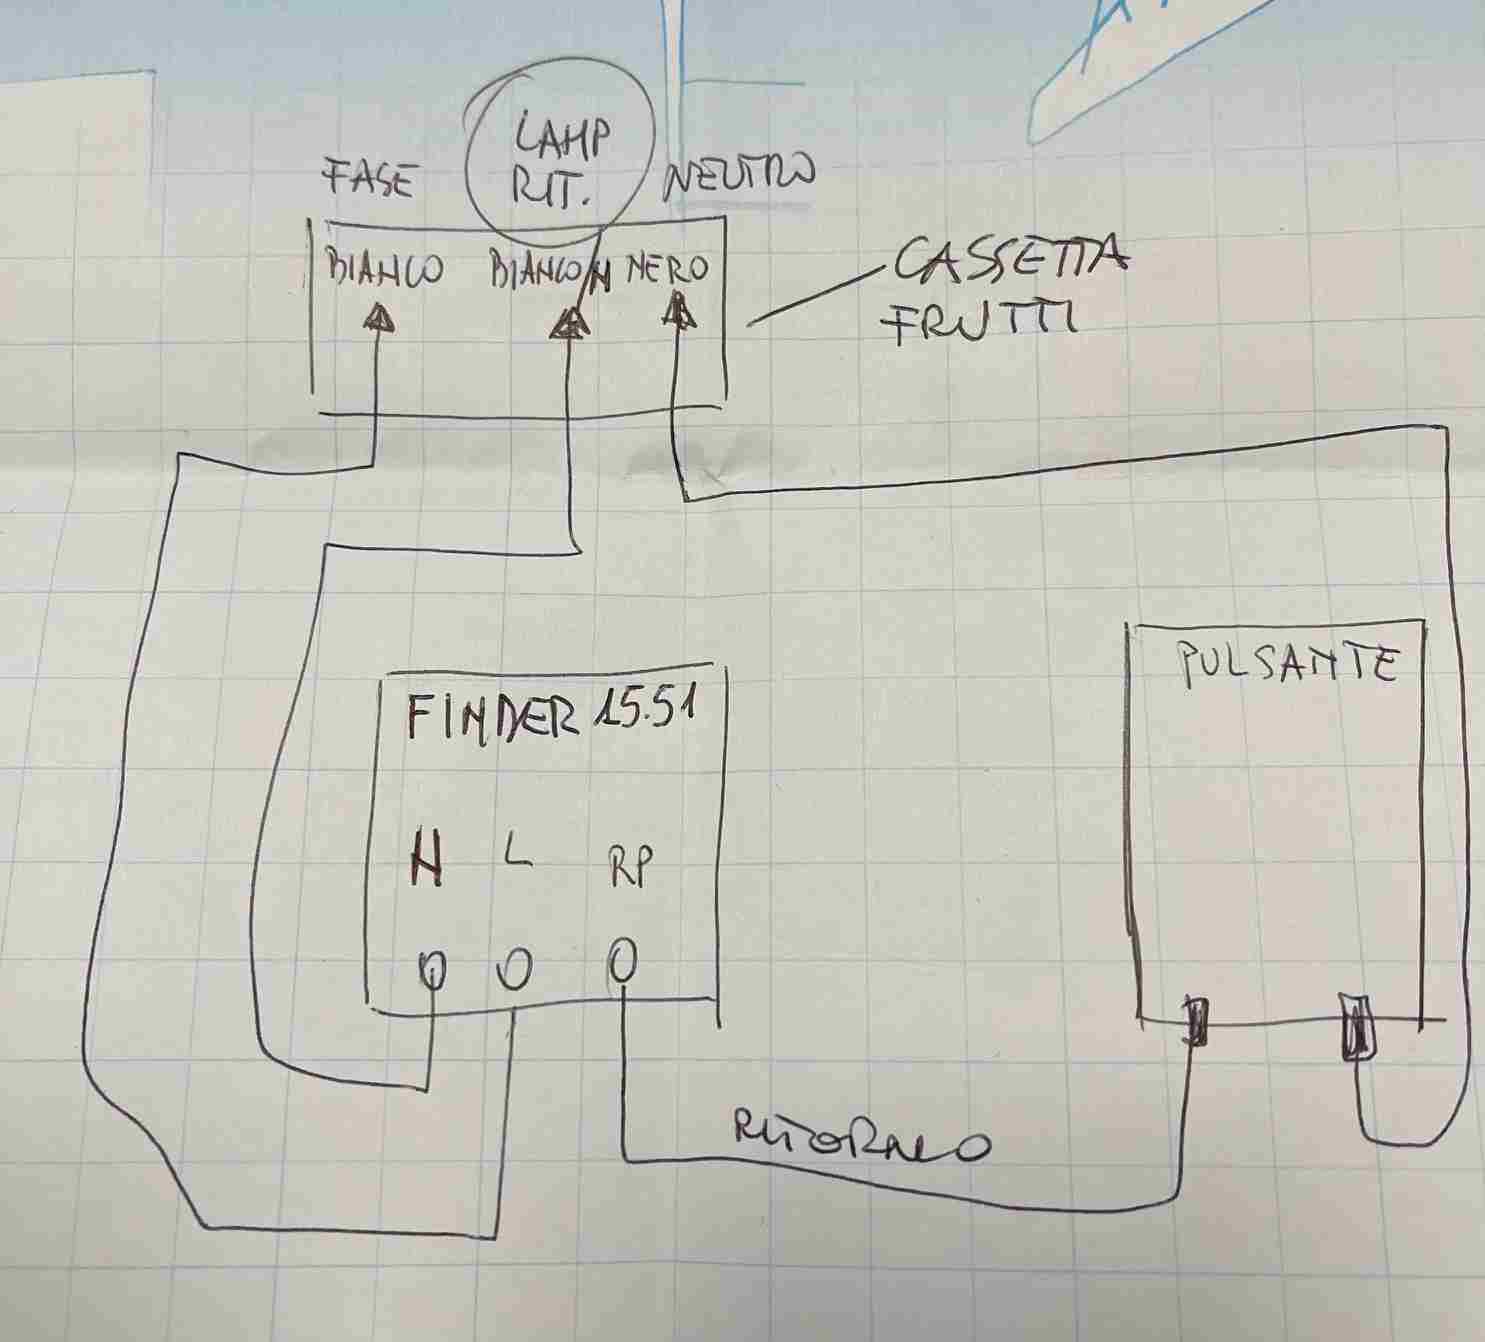 FASE
LAMP
RIT.
NEUTRO
BIANCO
BIANCO
N
NERO
CASSETTA
FRUTTI
PULSANTE
FINDER 15.51
N L RP
RITORNO